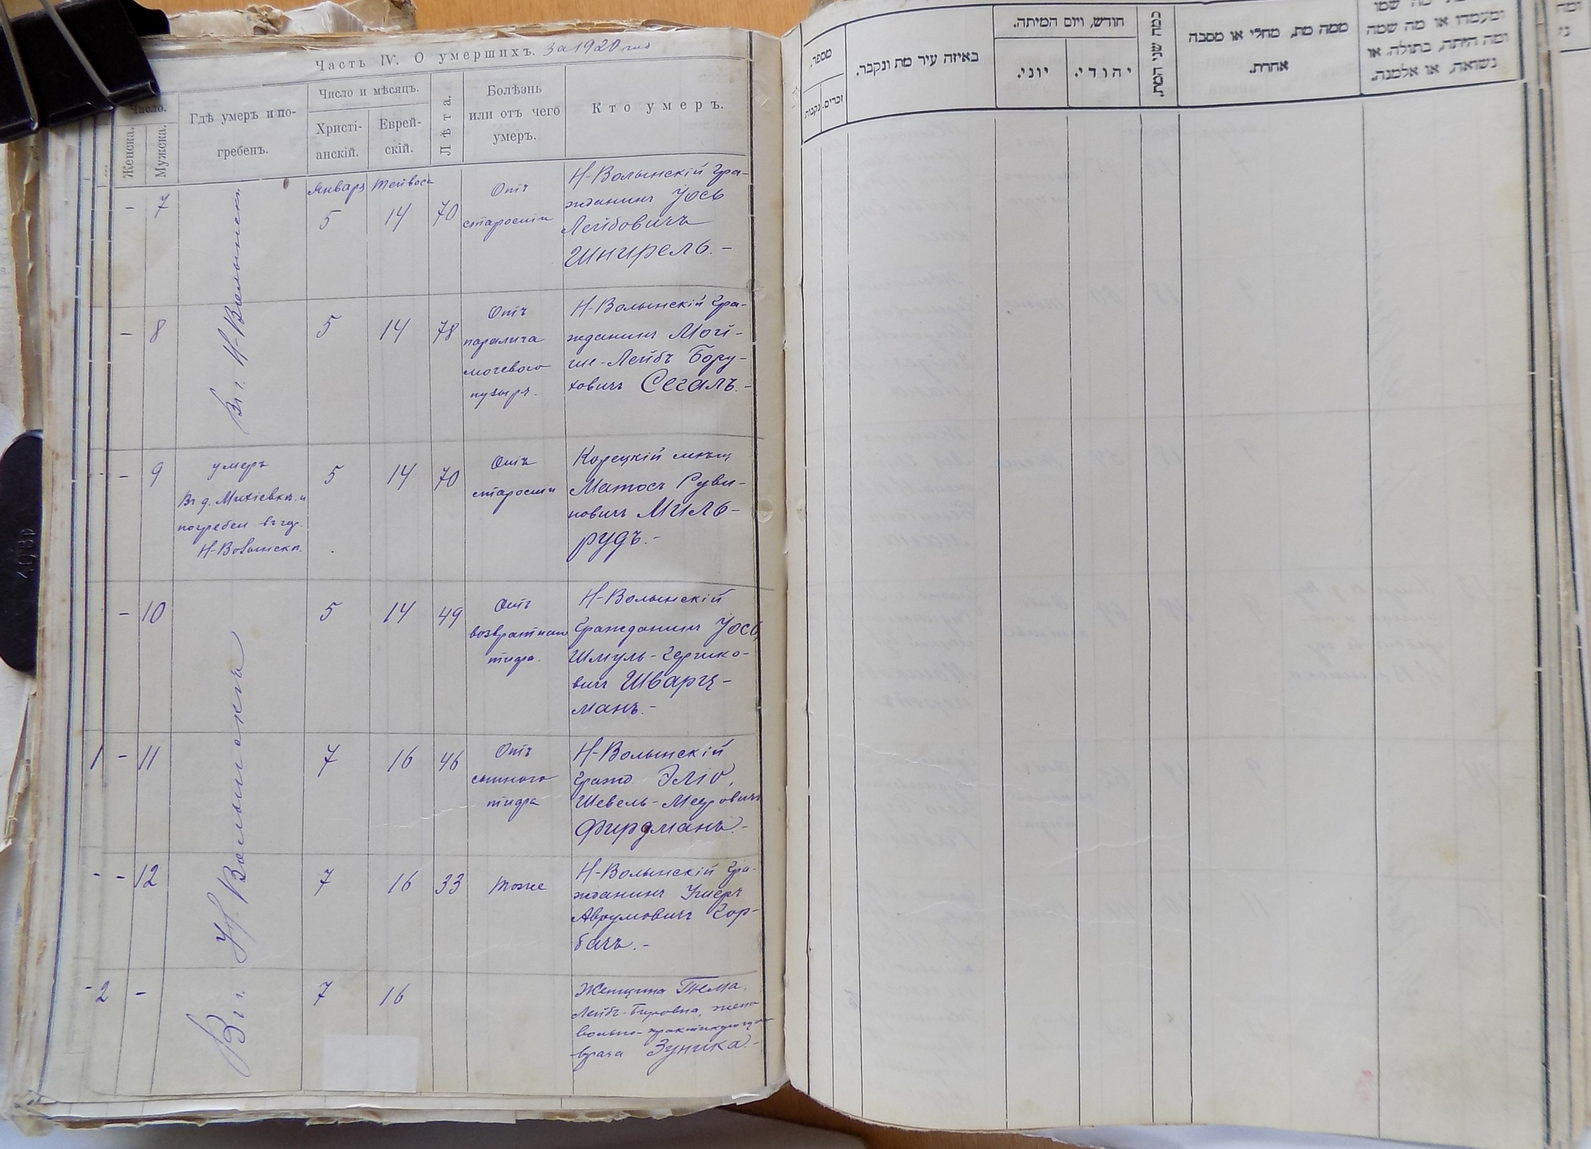 Часть IV. О умершихъ. За 1920 год
Число.
Женска.
Мужска.
Гдѣ умеръ и по-
гребенъ.
Число и мѣсяцъ.
Христі-
анскій.
Еврей-
скій.
Лѣта.
Болѣзнь
или отъ чего
умеръ.
Кто умеръ.
Январь Тейвось
- 7 5 14 70
Въ г. Н-Волынскѣ
Отъ
старости
Н-Волынскій гра-
жданинъ Іось
Лейбовичъ
Шнирель.-
- 8 5 14 78
Отъ
паралича
мочевого
пузыря.
Н-Волынскій гра-
жданинъ Мой-
ше-Лейбъ Бору-
ховичъ Сегаль.-
- 9 5 14 70
умеръ
Въ д.
погребен въ гор.
Н-Волынскѣ.
Отъ
старости
Корецкій мѣщ.
Матосъ Руви-
новичъ Миль-
рудъ.-
- 10 5 14 49
Отъ
возвратнаго
тифа.
Н-Волынскій
Гражданинъ Іось
Шмуль-Гершко-
вичъ Шварц-
манъ.-
1 - 11 7 16 46
Въ г. Н-Волынскѣ
Отъ
сыпного
тифа
Н-Волынскій
гражд
Шевель-Мееровичъ
Фирдманъ.-
- - 12 7 16 33
тоже
Н-Волынскій гра-
жданинъ Ушеръ
Аврумовичъ Гор-
бачъ.-
- 2 - 7 16
Женщина Тема
Лейбъ-Беровна, жена
вольно-практикующаго
врача Зуника.-
מספר.
זכרים.
נקבות
באיזה עיר מת ונקבר.
חודש, ויום המיתה.
יהודי.
יוני.
כמה שני המת.
ממה מת, מחלי או מסבה
אחרת.
ומעמדו או מה שמה
ומה היתה, בתולה, או
נשואה, או אלמנה.